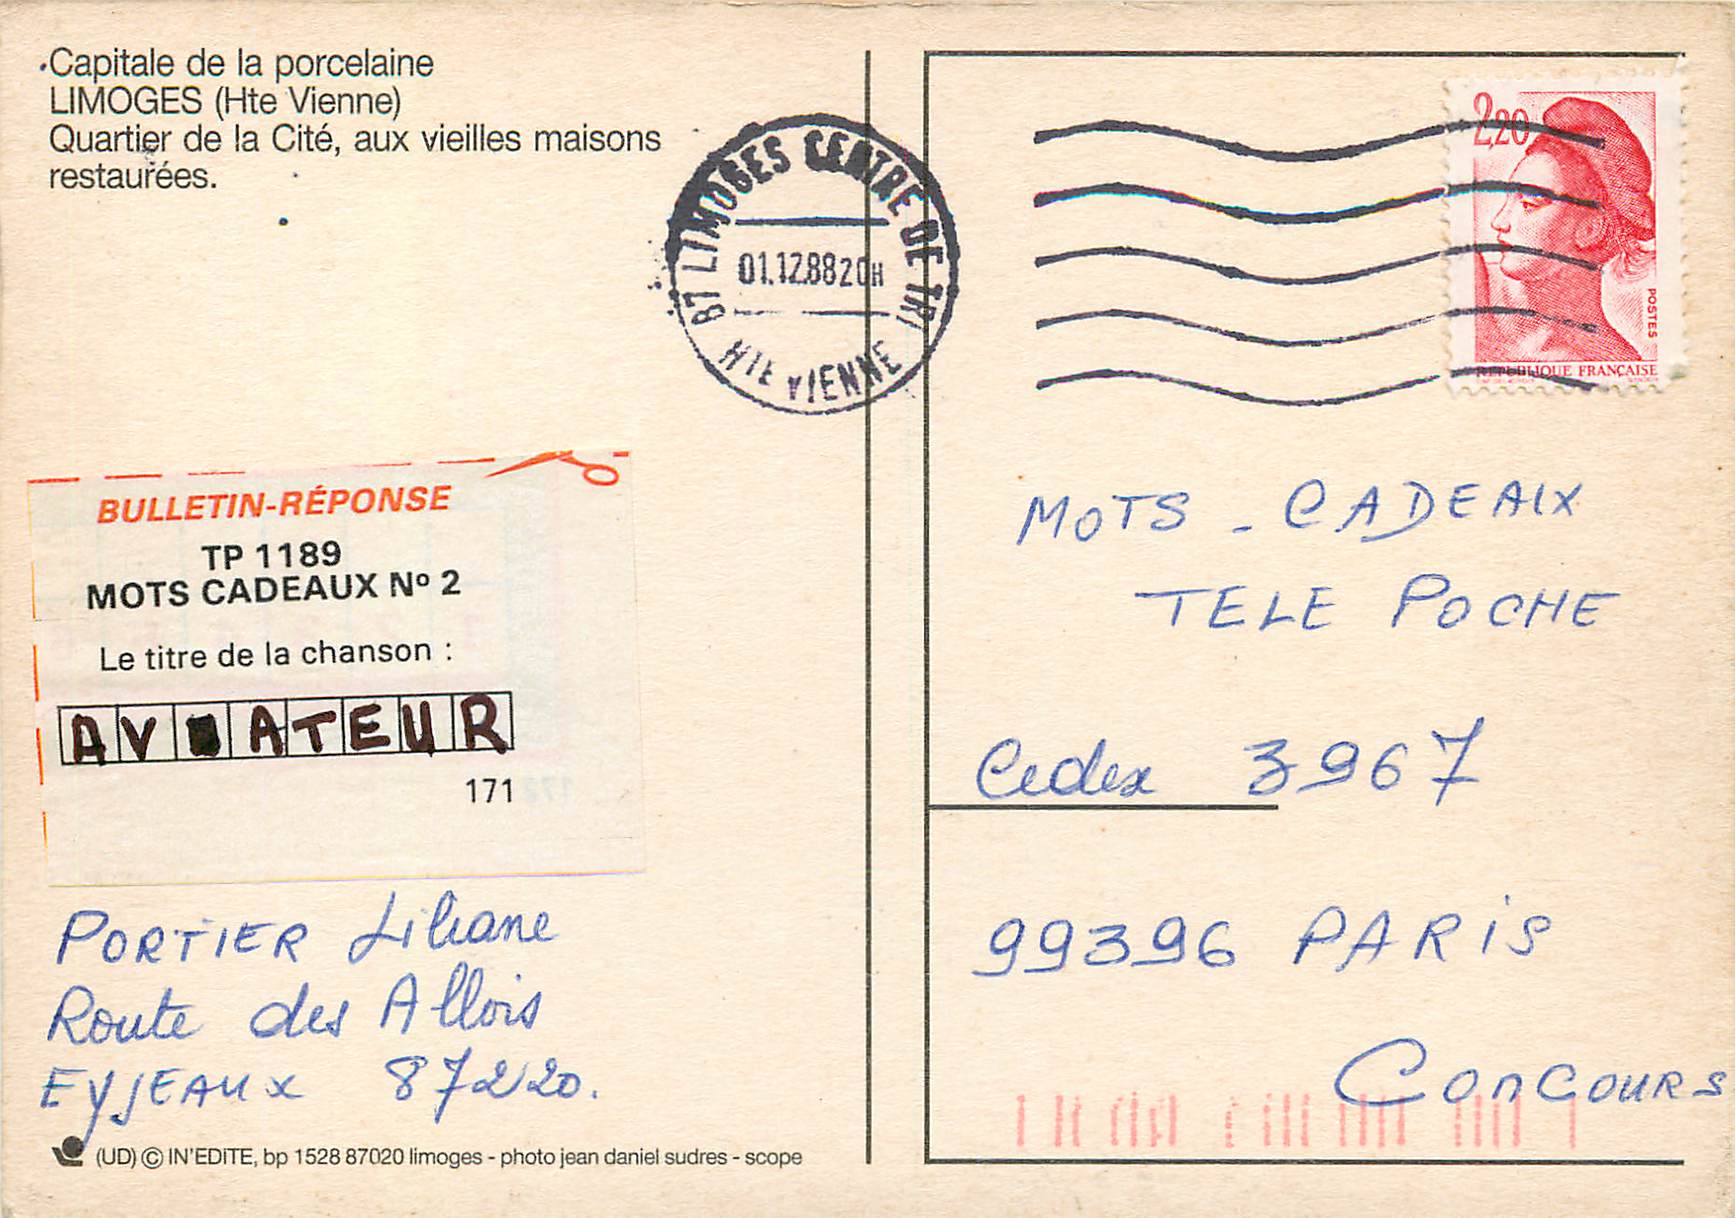 Capitale de la porcelaine
LIMOGES (Hte Vienne)
Quartier de la Cité, aux vieilles maisons
restaurées.
87 LIMOGES CENTRE DE TRI
01.12.88 20H
HTE VIENNE
2,20
POSTES
REPUBLIQUE FRANÇAISE
BULLETIN-RÉPONSE
TP 1189
MOTS CADEAUX Nº 2
Le titre de la chanson :
AV ATEUR
171
PORTIER Liliane
Route des Allois
EYJEAUX 87220.
(UD) © IN'EDITE, bp 1528 87020 limoges - photo jean daniel sudres - scope
MOTS - CADEAUX
TELE POCHE
Cedex 3967
99396 PARIS
CONCOURS